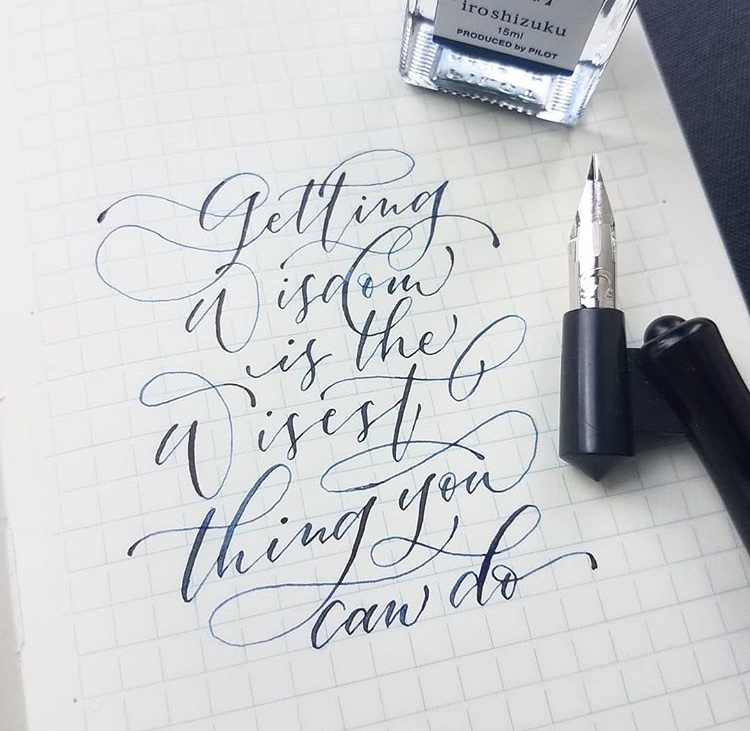 iroshizuku
15ml
PRODUCED by PILOT
Getting
Wisdom
is the
Wisest
thing you
can do